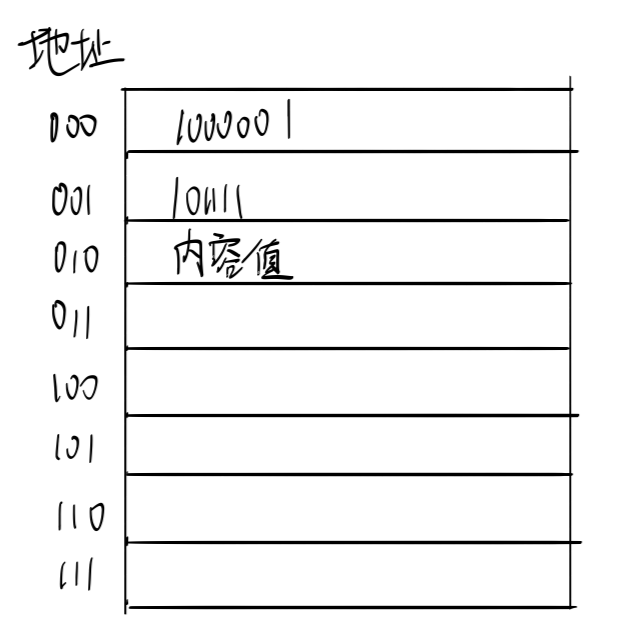 地址
000 1000001
001 10111
010 内容值
011
100
101
110
111